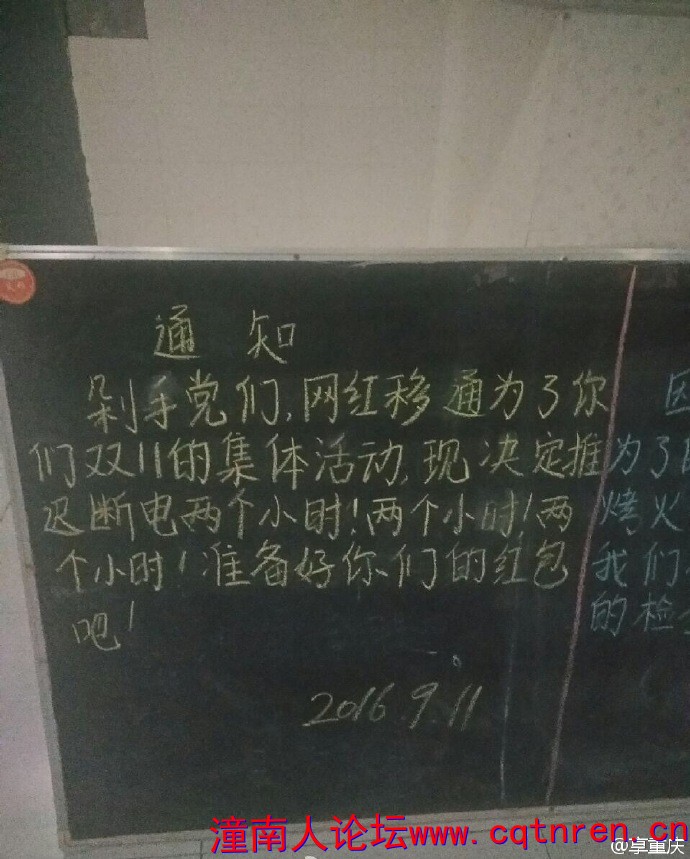 通 知
剁手党们,网红移通为了你
们双11的集体活动,现决定推
迟断电两个小时!两个小时!两
个小时!准备好你们的红包
吧!
2016.9.11
因
为了
烤火
我们
的检
潼南人论坛www.cqtnren.cn
@享重庆